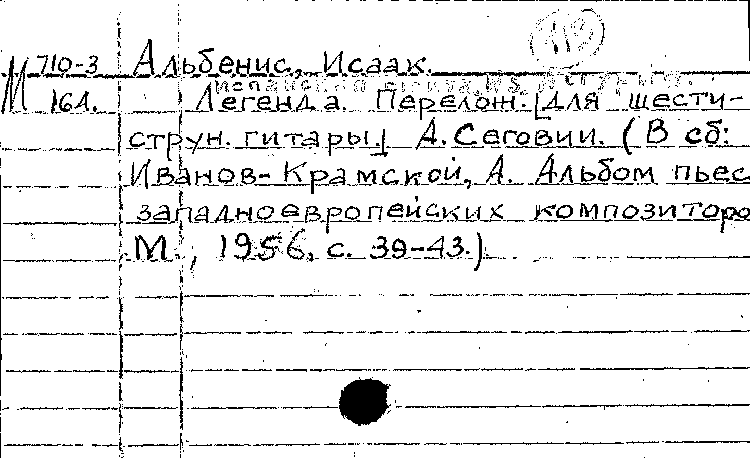 М 710-3 Альбенис, Исаак.
164. Легенда. Перелож. [для шести-
струн. гитары.] А. Сеговии. (В сб:
Иванов-Крамской, А. Альбом пьес
западноевропейских композиторо
М., 1956, с. 39-43.)